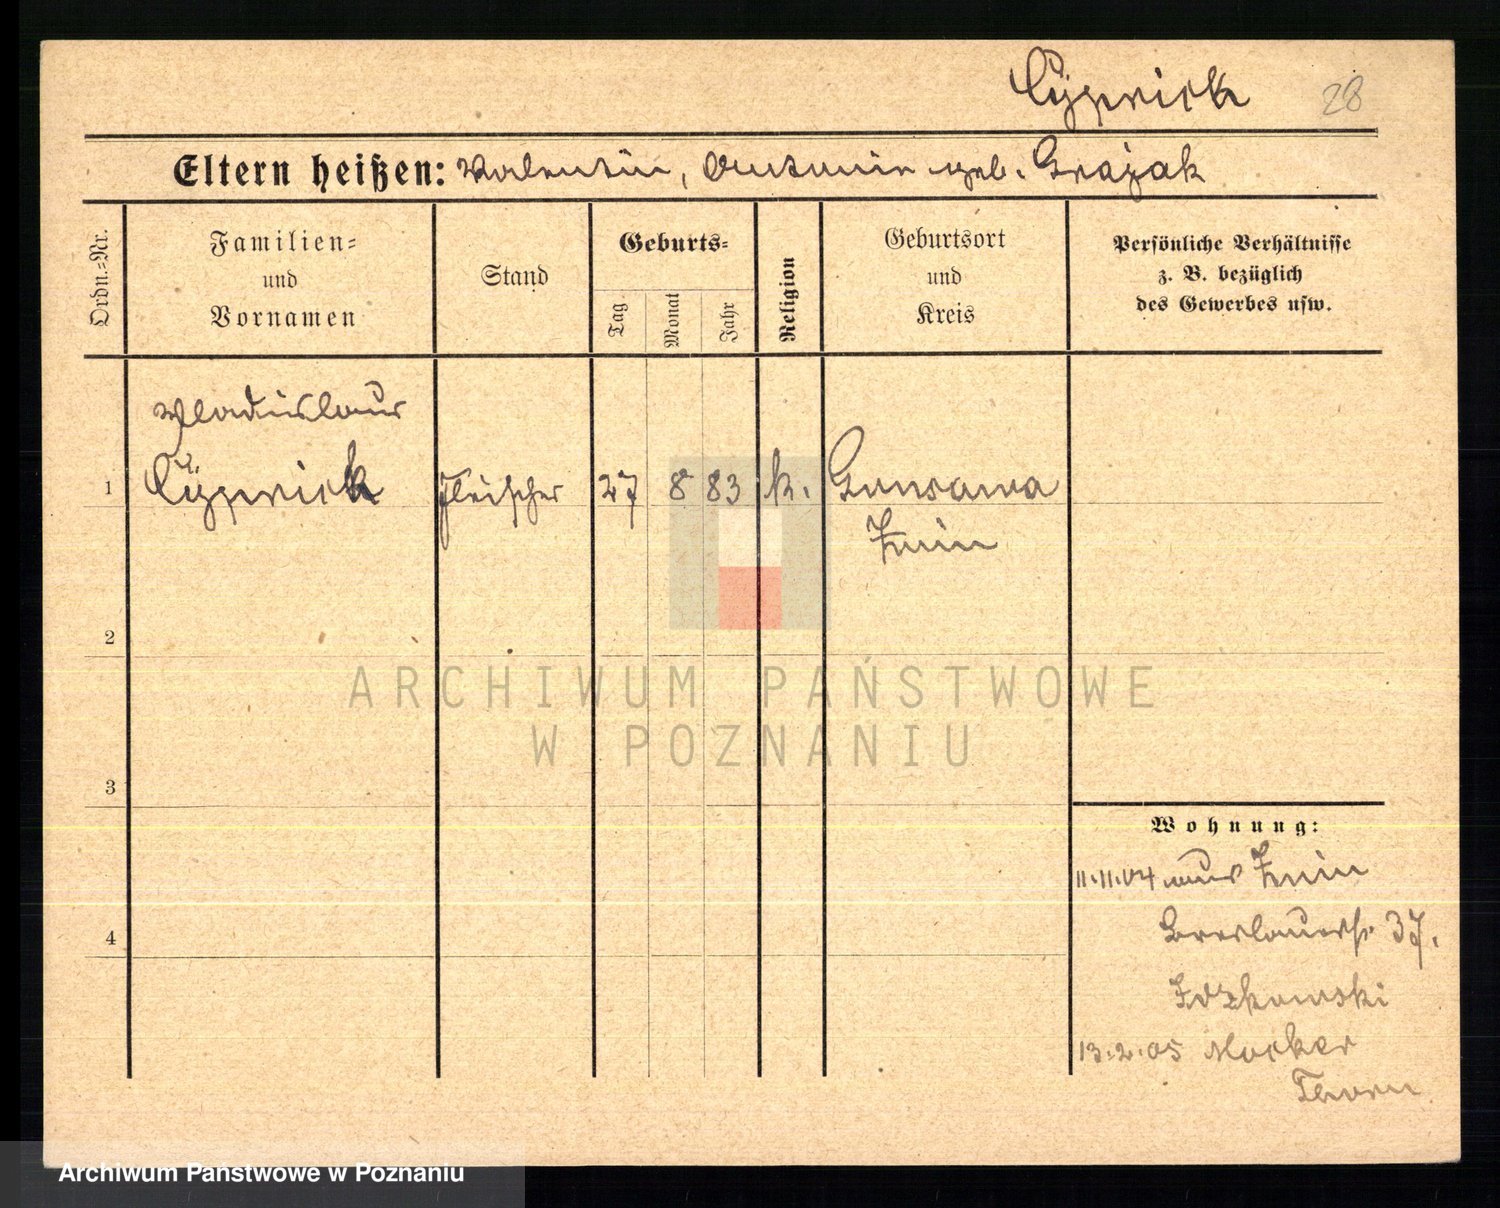 Cÿzprick 28
Eltern heißen: Valentin, Antonie geb. Grajak
Ordn.=Nr.
Familien=
und
Vornamen
Stand
Geburts=
Tag
Monat
Jahr
Religion
Geburtsort
und
Kreis
Persönliche Verhältnisse
z. B. bezüglich
des Gewerbes usw.
Wladislaus
1 Fleischer 27 8 83 k. Gonsawa
Znin
2
ARCHIWUM PAŃSTWOWE
W POZNANIU
3
Wohnung:
11.11.04 aus Znin
4 Breslauerstr 37.
13.2.05 Mocker
Thorn
Archiwum Państwowe w Poznaniu